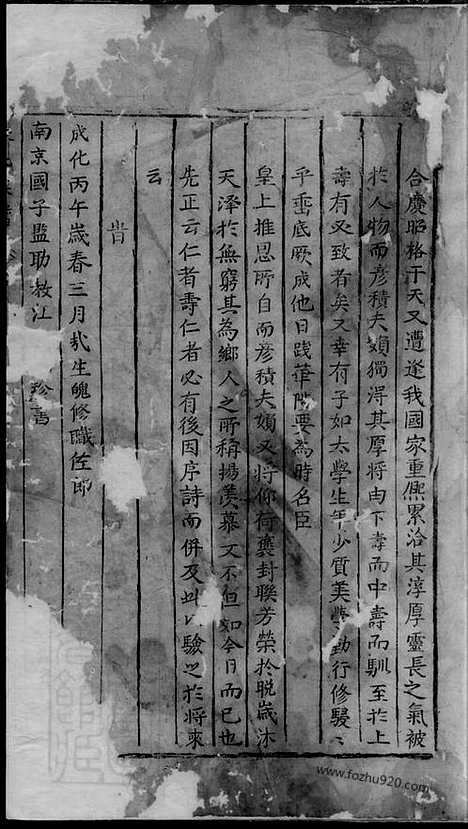 合慶昭格于天又遭逢我國家重熈累洽其淳厚靈長之氣被
於人物而彦積夫婦獨得其厚將由下壽而中壽而馴至於上
壽有必致者矣又幸有子如太學生年少質美學勤行修駸〻
乎垂底厥成他日踐華陟要為時名臣
皇上推恩所自而彦積夫婦又將仰荷褒封聯芳榮於晚歲沐
天澤於無窮其為鄉人之所稱揚羡慕又不但如今日而已也
先正云仁者壽仁者必有後因序詩而併及此以驗之於將來
云
旹
成化丙午歲春三月哉生魄修職佐郎
南京國子監助教江 珍書
www.fozhu920.com